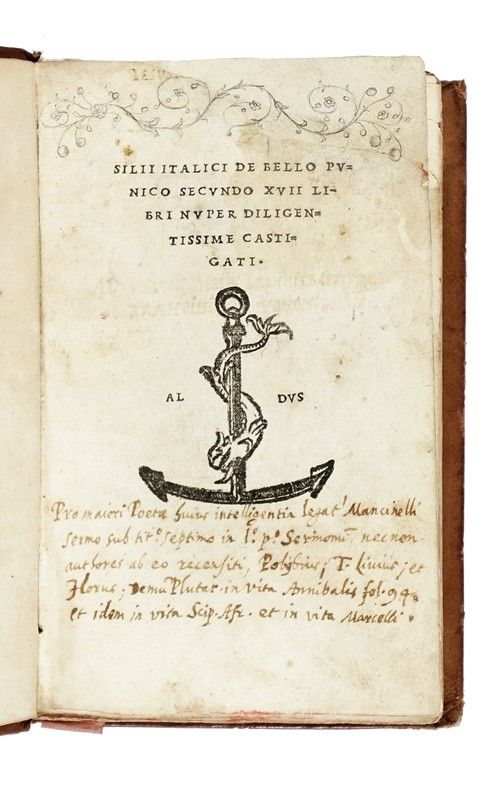 IESV
SILII ITALICI DE BELLO PV=
NICO SECVNDO XVII LI=
BRI NVPER DILIGEN=
TISSIME CASTI=
GATI.
AL DVS
Pro maiori Poeta huius intelligentia legat' Mancinelli
sermo sub tit° septimo in l° p° Sermonũ, necnon
authores ab eo recensiti, Polybius; T. Livius; et
Florus; Demũ Plutar. in vita Annibalis fol. 94.
et idem in vita Scip. Afr. et in vita Marcelli.